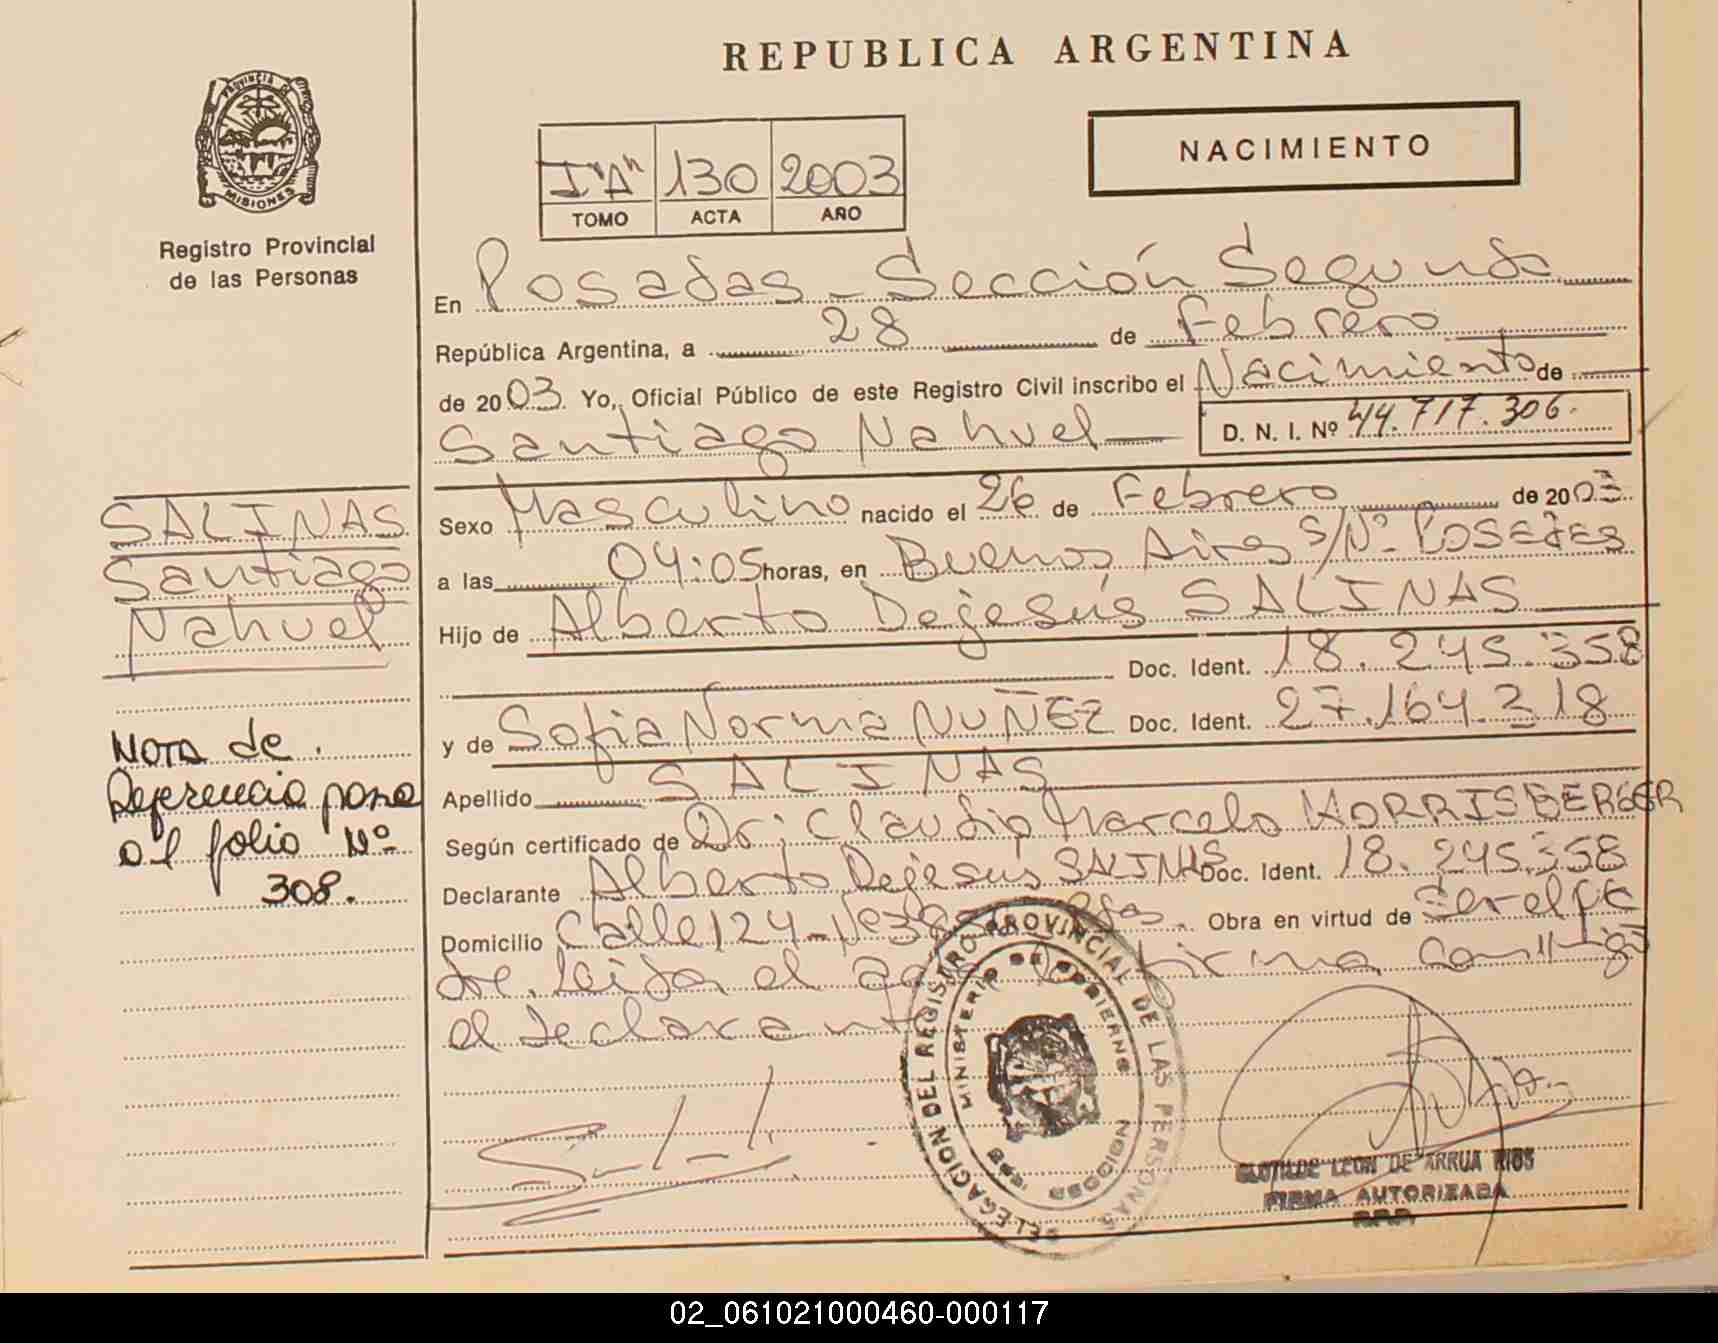 REPUBLICA ARGENTINA
PROVINCIA DE
MISIONES
Registro Provincial
de las Personas
NACIMIENTO
I "A" 130 2003
TOMO ACTA AÑO
En Posadas - Sección Segunda
República Argentina, a 28 de Febrero
de 2003. Yo, Oficial Público de este Registro Civil inscribo el Nacimiento de
Santiago Nahuel
D. N. I. Nº 44.717.306.
SALINAS
Santiago
Nahuel
Sexo Masculino nacido el 26 de Febrero de 2003
a las 04:05 horas, en Buenos Aires S/Nº Posadas
Hijo de Alberto Dejesús SALINAS
Doc. Ident. 18.245.358
y de Sofia Norma NUÑEZ Doc. Ident. 27.164.318
Apellido SALINAS
Según certificado de Dr: Claudio Marcelo HORRISBERGER
Declarante Alberto Dejesús SALINAS Doc. Ident. 18.245.358
Domicilio Calle 124 - Nº Obra en virtud de
Leida el acta la firma
el declarante
NOTA de
Referencia pasa
al folio Nº
308.
DELEGACION DEL REGISTRO PROVINCIAL DE LAS PERSONAS
MINISTERIO DE GOBIERNO
SECCION
CLOTILDE LEON DE ARRUA RIOS
FIRMA AUTORIZADA
R.P.P.
02_061021000460-000117